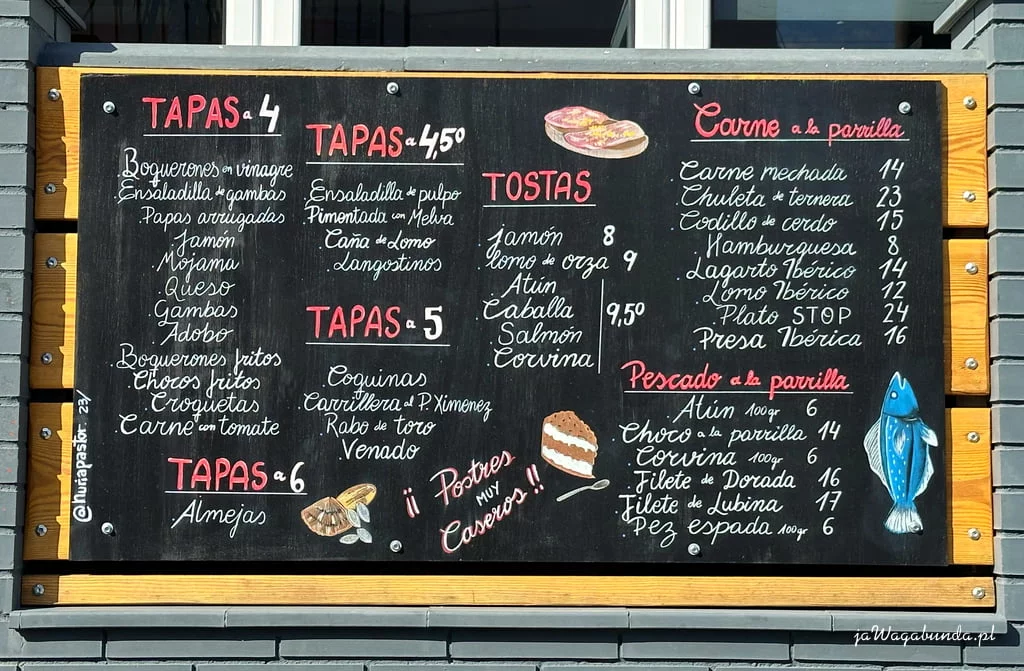 TAPAS a 4
Boquerones en vinagre
Ensaladilla de gambas
Papas arrugadas
Jamón
Mojama
Queso
Gambas
Adobo
Boquerones fritos
Chocos fritos
Croquetas
Carne con tomate
TAPAS a 6
Almejas
@hurapastor 23/
TAPAS a 4,50
Ensaladilla de pulpo
Pimentada con Melva
Caña de Lomo
Langostinos
TAPAS a 5
Coquinas
Carrillera al P. Ximenez
Rabo de toro
Venado
TOSTAS
Jamón 8
lomo de orza 9
Atún
Caballa
Salmón
Corvina
9,50
¡¡ Postres
MUY
Caseros !!
Carne a la parrilla
Carne mechada 14
Chuleta de ternera 23
Codillo de cerdo 15
Hamburguesa 8
Lagarto Ibérico 14
Lomo Ibérico 12
Plato STOP 24
Presa Ibérica 16
Pescado a la parrilla
Atún 100gr 6
Choco a la parrilla 14
Corvina 100gr 6
Filete de Dorada 16
Filete de Lubina 17
Pez espada 100gr 6
jaWagabunda.pl